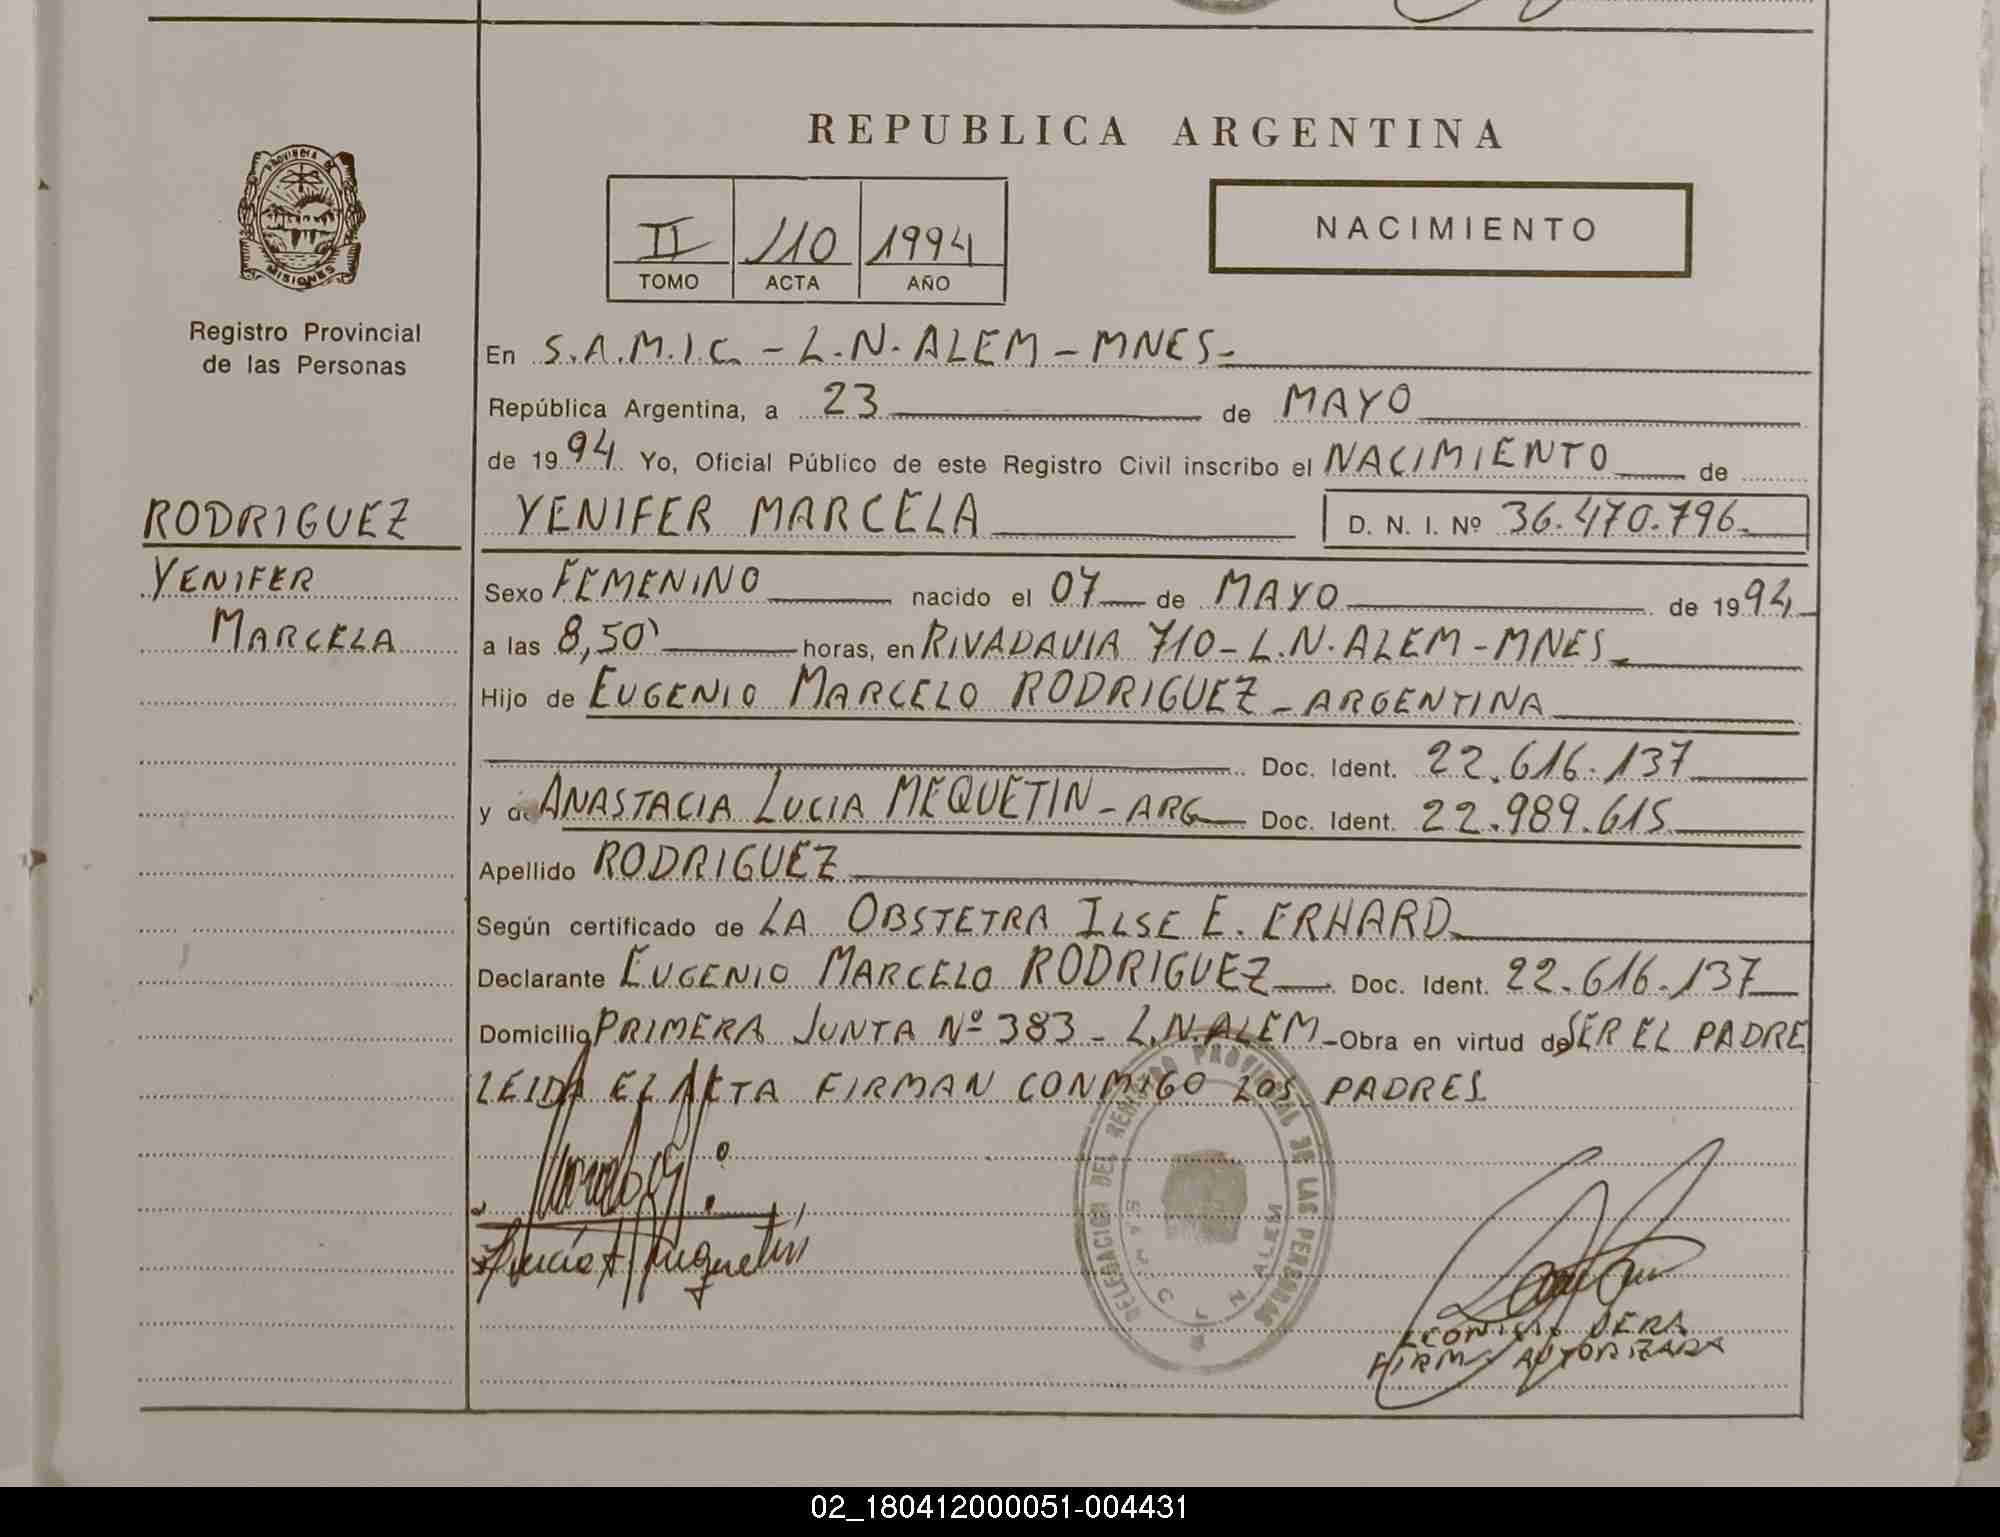 REPUBLICA ARGENTINA
PROVINCIA DE
MISIONES
Registro Provincial
de las Personas
II 110 1994
TOMO ACTA AÑO
NACIMIENTO
En S.A.M.I.C. - L.N. ALEM - MNES.
República Argentina, a 23 de MAYO
de 1994 Yo, Oficial Público de este Registro Civil inscribo el NACIMIENTO de
RODRIGUEZ
YENIFER
MARCELA
YENIFER MARCELA D. N. I. Nº 36.470.796
Sexo FEMENINO nacido el 07 de MAYO de 1994
a las 8,50 horas, en RIVADAVIA 710 - L.N. ALEM - MNES
Hijo de EUGENIO MARCELO RODRIGUEZ - ARGENTINA
Doc. Ident. 22.616.137
y de ANASTACIA LUCIA MEQUETIN - ARG Doc. Ident. 22.989.615
Apellido RODRIGUEZ
Según certificado de LA OBSTETRA ILSE E. ERHARD
Declarante EUGENIO MARCELO RODRIGUEZ Doc. Ident. 22.616.137
Domicilio PRIMERA JUNTA Nº 383 - L.N. ALEM - Obra en virtud de SER EL PADRE
LEIDA EL ACTA FIRMAN CONMIGO LOS PADRES
DELEGACION DEL REGISTRO PROVINCIAL DE LAS PERSONAS
N ALEM
FIRMA AUTORIZADA
02_180412000051-004431